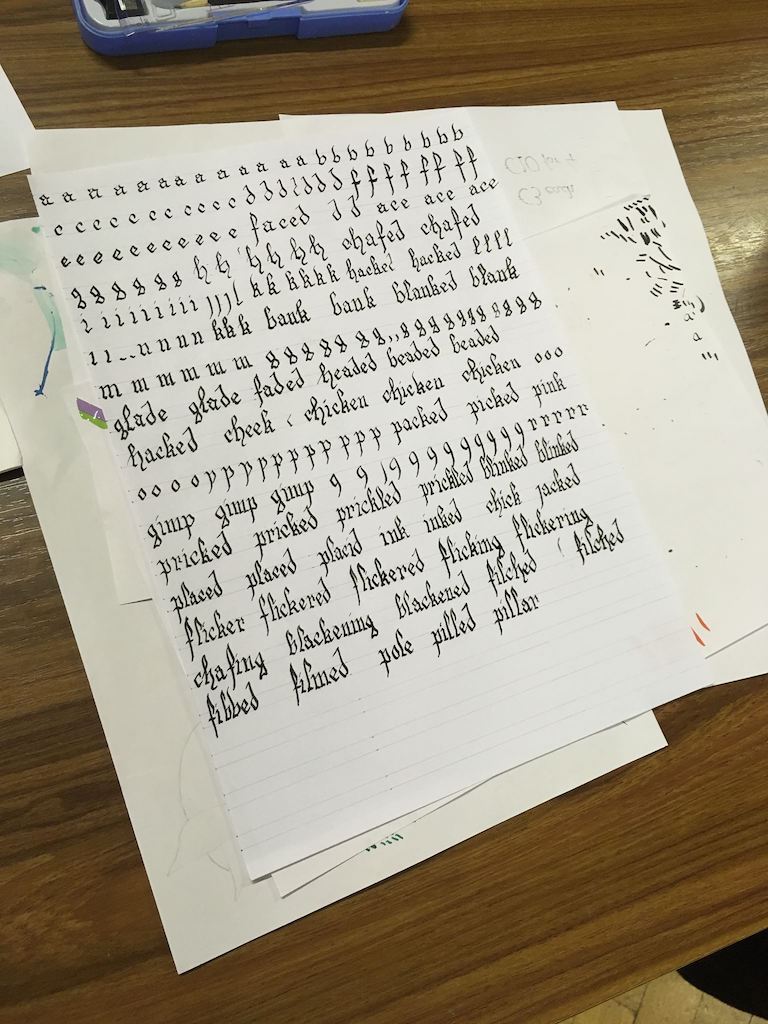 a a a a a a a a a a a a b b b b b b b b b
c c c c c c c c c c d d d d d d f f f f f f f f
e e e e e e e e e e e faced d d ace ace ace
g g g g g g h h h h h h chafed chafed
i i i i i i i i i j j j l k k k k k k hacked hacked l l l l
i i n n n n k k k bank bank blanked blank
m m m m m m g g g g g g g g g g g g g g g
glade glade faded headed beaded beaded
hacked cheek chicken chicken chicken o o o
o o o o p p p p p p p p p p p packed picked pink
gimp gimp gimp q q q q q q q q q q q r r r r r
pricked pricked prickled prickled blinked blinked
placed placed placid ink inked chick jacked
flicker flickered flickered flicking flickering
chafing blackening blackened filched filched
fibbed filmed pole pilled pillar